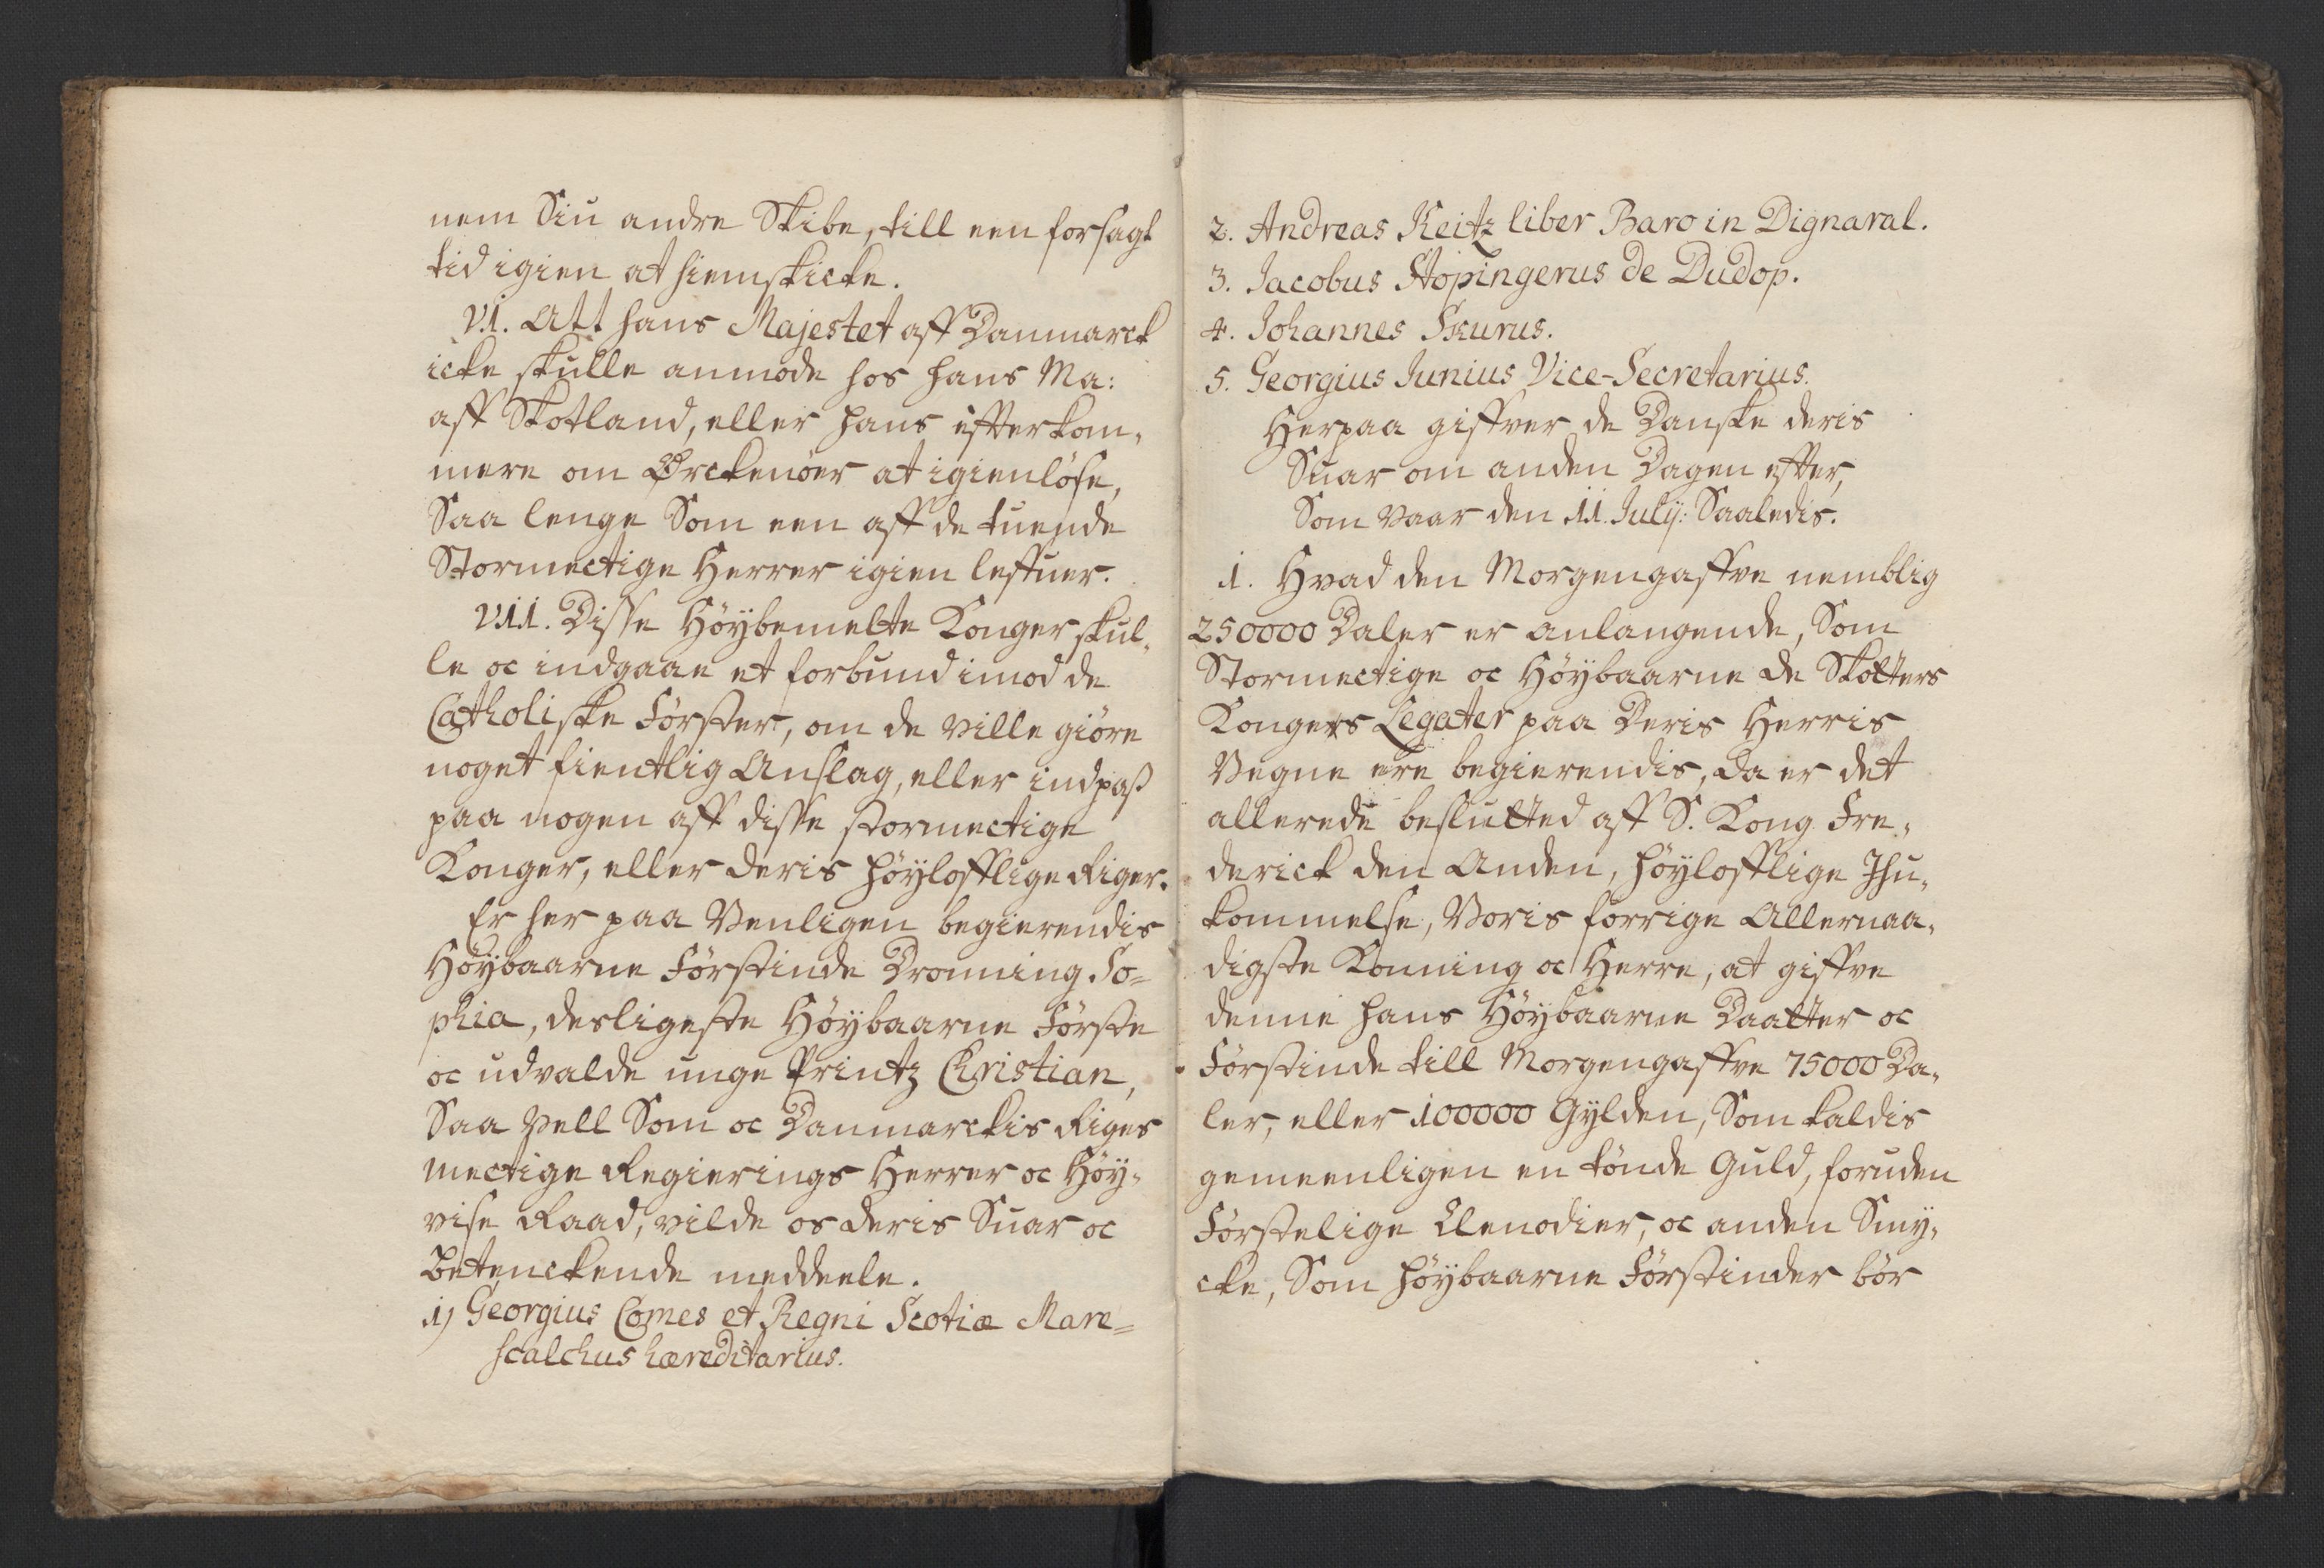 nem Siu andre Skibe, till een forsagt
tid igien at hiemskicke.
VI. Att hans Majestet aff Danmarck
icke skulle anmode hos hans Ma:
aff Skotland, eller hans efterkom,
mere om Ørckenøer at igienløse,
Saa lenge Som een aff de tuende
Stormectige Herrer igien leffuer.
VII. Disse Høybemelte Konger skul,
le oc indgaae et forbund imod de
Catholiske Førster, om de ville giøre
noget fientlig Anslag, eller indpaß
paa nogen aff disse stormectige
Konger, eller deris høylofflige Riger.
Er her paa Venligen begierendis
Høybaarne Førstinde Dronning So=
phia, desligeste Høybaarne Første
oc udvalde unge Printz Christian,
Saa Vell Som oc Danmarckis Riges
mectige Regierings Herrer oc Høy,
vise Raad, vilde os deris Suar oc
Betenckende meddeele.
1) Georgius Comes et Regni Scotiæ Mare=
scalchus hæreditarius.
2. Andreas Keitz liber Baro in Dignaral.
3. Jacobus Stopingerus de Dudop.
4. Johannes Skurus.
5. Georgius Junius Vice-Secretarius.
Herpaa giffver de Danske deris
Suar om anden Dagen efter,
Som vaar den 11. Julij: Saaledis.
1. Hvad den Morgengaffve nemblig
250000 Daler er anlangende, Som
Stormectige oc Høybaarne de Skotters
Kongers Legater paa Deris Herris
Vegne ere begierendis, da er det
allerede beslutted aff S. Kong Fre,
derick den Anden, høylofflige Ihu,
kommelse, Voris forrige Allernaa,
digste Konning oc Herre, at giffve
denne hans Høybaarne Daatter oc
Førstinde till Morgengaffve 75000 Da,
ler, eller 100000 Gylden, Som kaldis
gemeenligen en tønde Guld, foruden
Førstelige Clenodier, oc anden Smy,
cke, Som høybaarne Førstinder bør